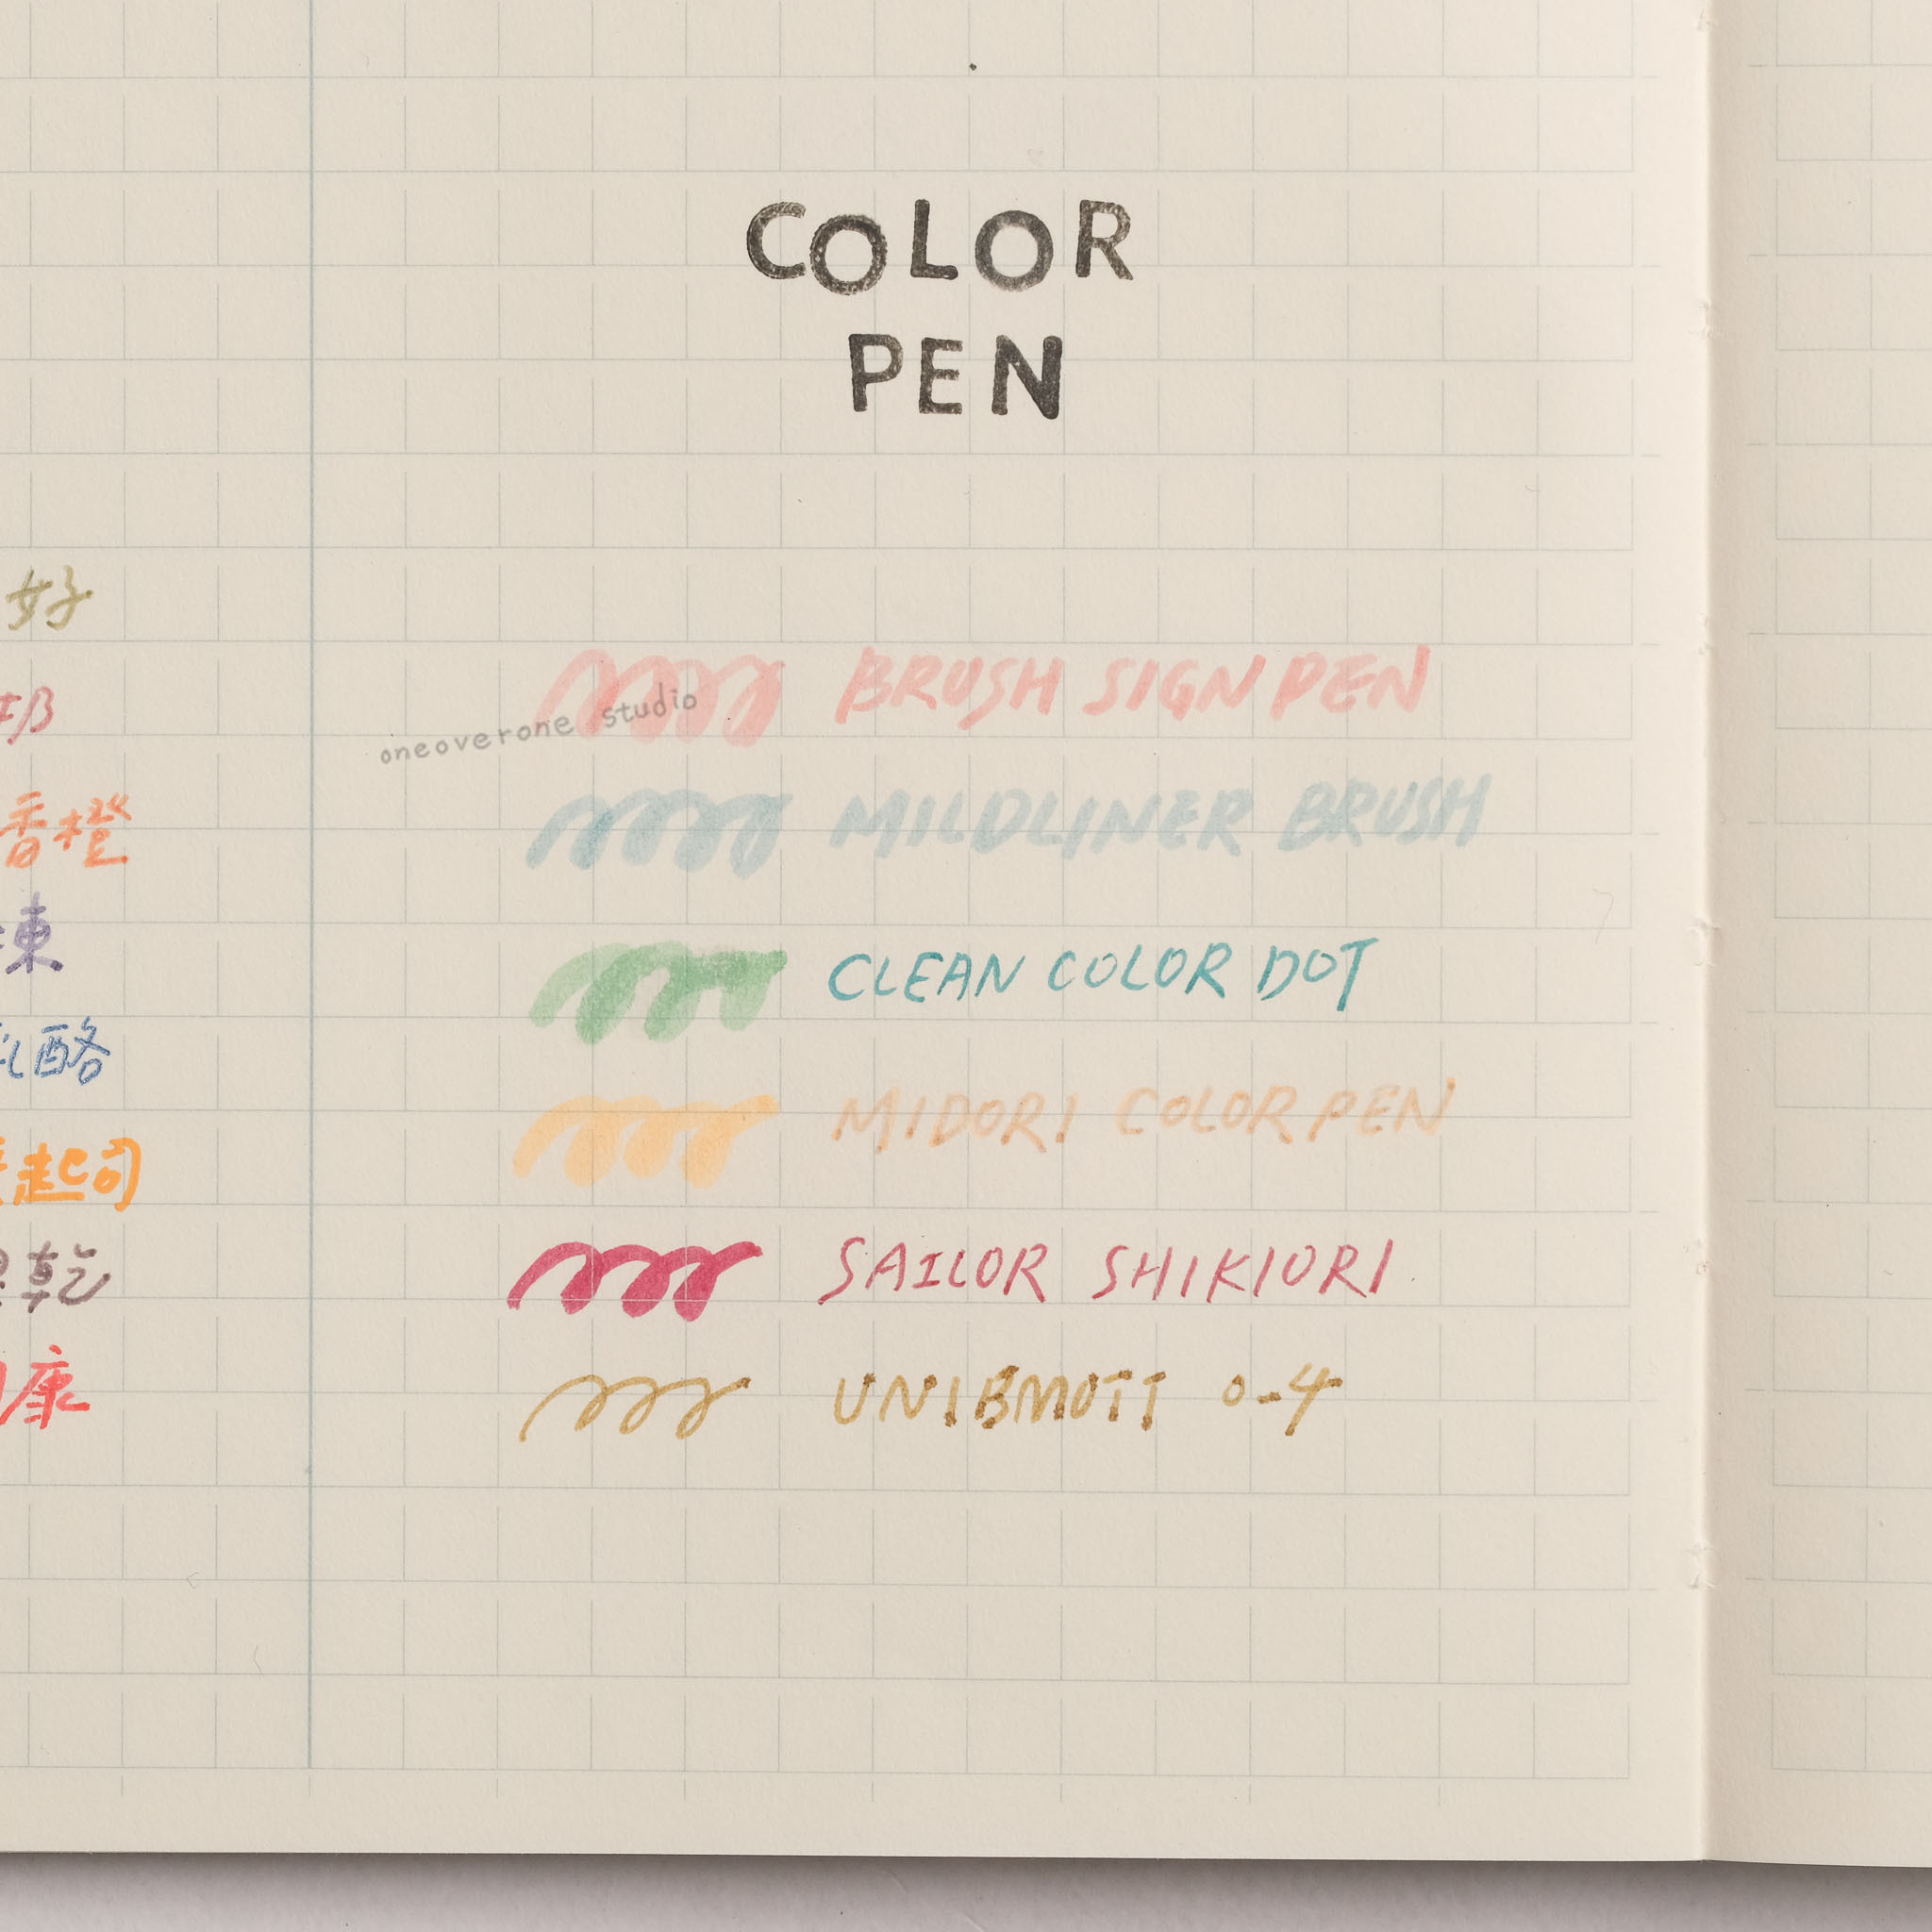 COLOR
PEN
好
香橙
凍
乳酪
起司
乾
康
BRUSH SIGN PEN
oneoverone studio
MILDLINER BRUSH
CLEAN COLOR DOT
MIDORI COLOR PEN
SAILOR SHIKIORI
UNIBMOTT 0-4